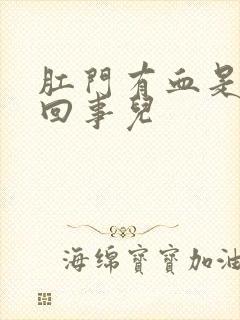 肛門有血是
回事兒
海绵寶寶加油